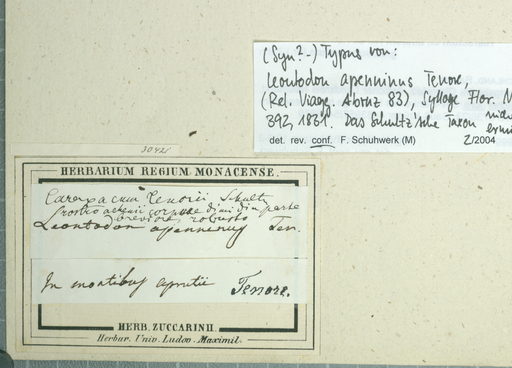 (Syn?-) Typus von:
Leontodon apenninus Tenore,
(Rel. Viagg. Abruz 83), Sylloge Flor. N
392, 1831. Das Schultz'sche Taxon
det. rev. conf. F. Schuhwerk (M) 2/2004
30421
HERBARIUM REGIUM MONACENSE.
Taraxacum Tenorii Schultz
rostro achenii corpore dimidia parte
breviore, robusto
Leontodon apenninus Ten.
In montibus aprutii Tenore.
HERB. ZUCCARINII.
Herbar. Univ. Ludov. Maximil.